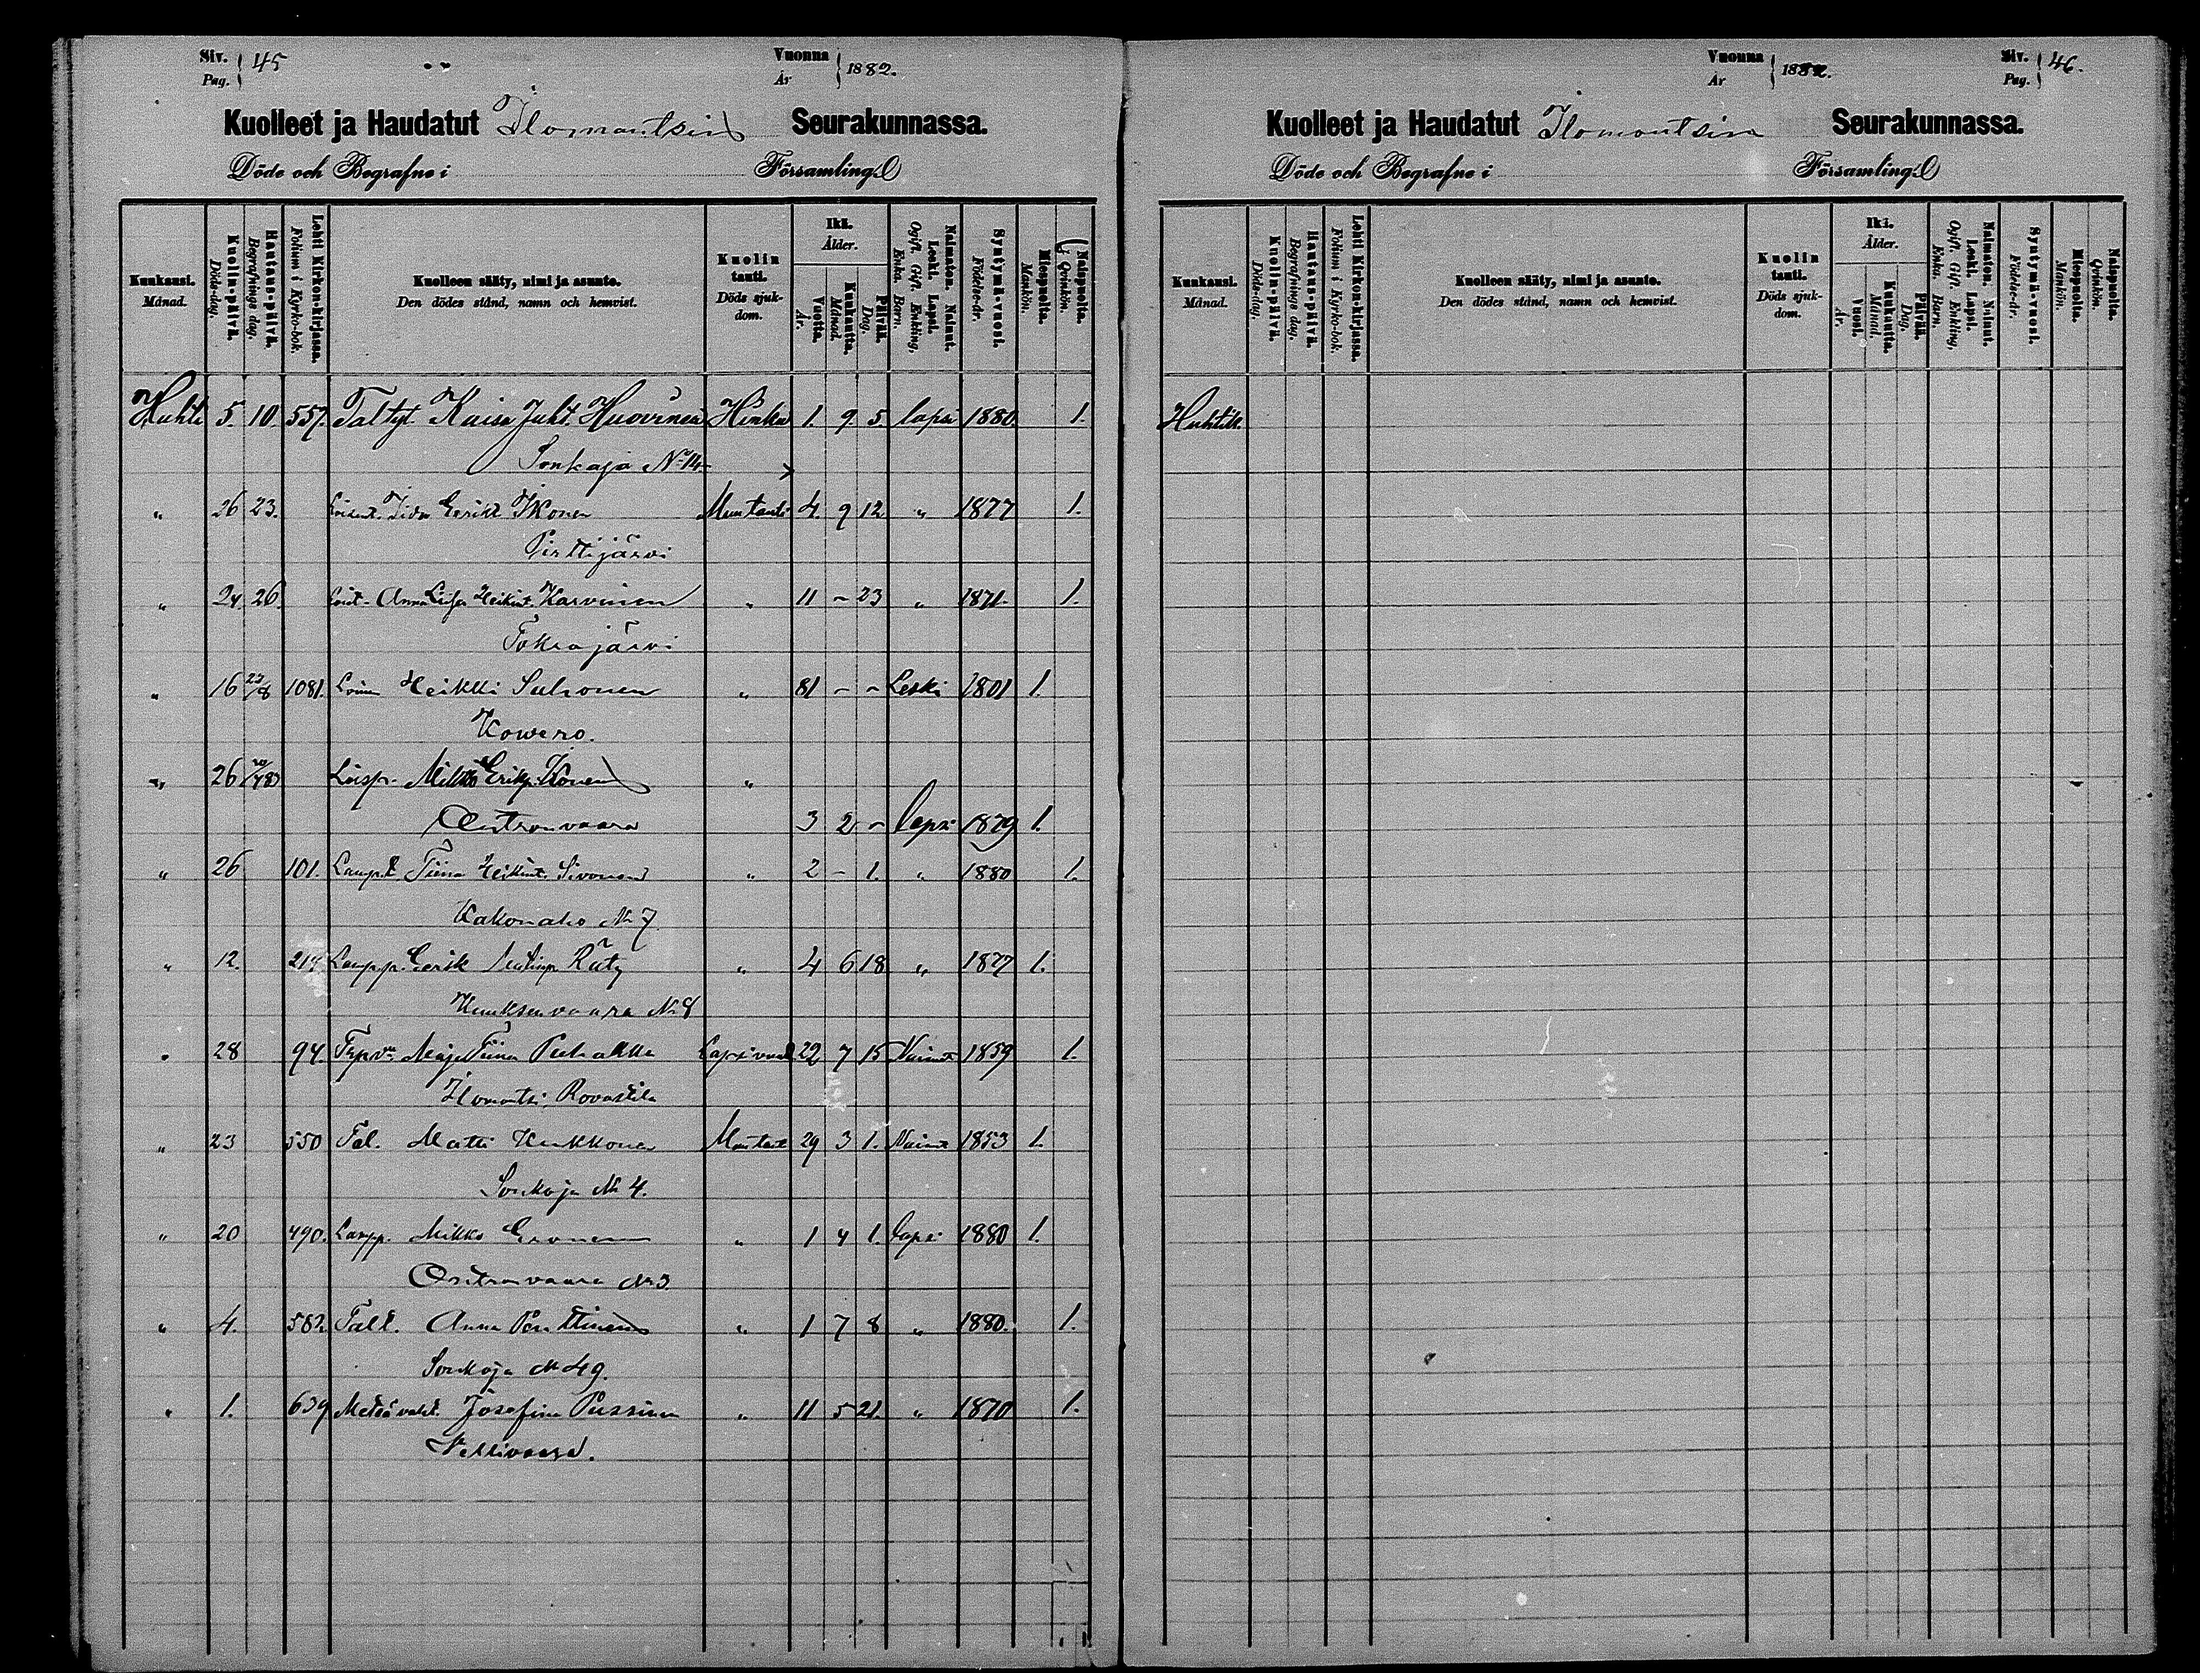 Siv. Pag. 45
Vuonna År 1882.
Kuolleet ja Haudatut Ilomantsin Seurakunnassa.
Döde och Begrafne i Församling
Kuukausi. Månad.
Kuolin-päivä. Döds-dag.
Hautaus-päivä. Begrafnings dag.
Lehti Kirkon-kirjassa. Folium i Kyrko-bok.
Kuolleen sääty, nimi ja asunto. Den dödes stånd, namn och hemvist.
Kuolin tauti. Döds sjuk-dom.
Ikä. Ålder.
Vuotta. År.
Kuukautta. Månad.
Päivää. Dag.
Naimaton. Nainut. Leski. Lapsi. Ogift. Gift. Enkling, Enka. Barn.
Syntymä-vuosi. Födelse-år.
Miespuolta. Mankön.
Naispuolta. Qvinkön.
Huhti 5. 10. 557. Taltyt. Kaisa Juht. Huovinen Hinku 1. 9. 5. lapsi 1880. 1.
Sonkaja No 14
" 26 23. Loisent. Iida Eerikt Ikonen Muu tauti 4. 9 12 " 1877 1.
Pirttijärvi
" 24. 26. Loist- Anna Liisa Heikint. Karvinen " 11 - 23 " 1871. 1.
Tokrajärvi
" 16 23/8 1081. Loinen Heikki Suhonen " 81 - - Leski 1801 1.
Kowero.
" 26 Loisp. Mikko Erikp. Ikonen "
Ontronvaara 3 2 - lapsi 1879 1.
" 26 101. Lamp.t. Tiina Heikint. Sivonen " 2 - 1. " 1880 1.
Kakonaho No 7
" 12. Lamp.p. Eerik Räty " 4 6 18 " 1877 1.
Kuuksenvaara No 8
" 28 94. Maja Tiina Puhakka 22 7 15 Nainut 1859 1.
Ilomantsi, Rovastila
" 23 550 Tal. Matti Kukkonen Muu taut 29 3 1. Nainut 1853 1.
Sonkaja No 4.
" 20 490. Lampp. Mikko Eronen " 1 4 1. lapsi 1880 1.
Ontronvaara No 3.
" 4. 582. Talt. Anna Penttinen " 1 7 8 " 1880. 1.
Sonkaja No 49.
" 1. 639 Metsävaht. Josefina Pussinen " 11 5 21. " 1870 1.
Nehvivaara.
Vuonna År 1882.
Siv. Pag. 46.
Kuolleet ja Haudatut Ilomantsin Seurakunnassa.
Döde och Begrafne i Församling
Kuukausi. Månad.
Kuolin-päivä. Döds-dag.
Hautaus-päivä. Begrafnings dag.
Lehti Kirkon-kirjassa. Folium i Kyrko-bok.
Kuolleen sääty, nimi ja asunto. Den dödes stånd, namn och hemvist.
Kuolin tauti. Döds sjuk-dom.
Ikä. Ålder.
Vuosi. År.
Kuukautta. Månad.
Päivää. Dag.
Naimaton. Nainut. Leski. Lapsi. Ogift. Gift. Enkling, Enka. Barn.
Syntymä-vuosi. Födelse-år.
Miespuolta. Mankön.
Naispuolta. Qvinkön.
Huhtik.